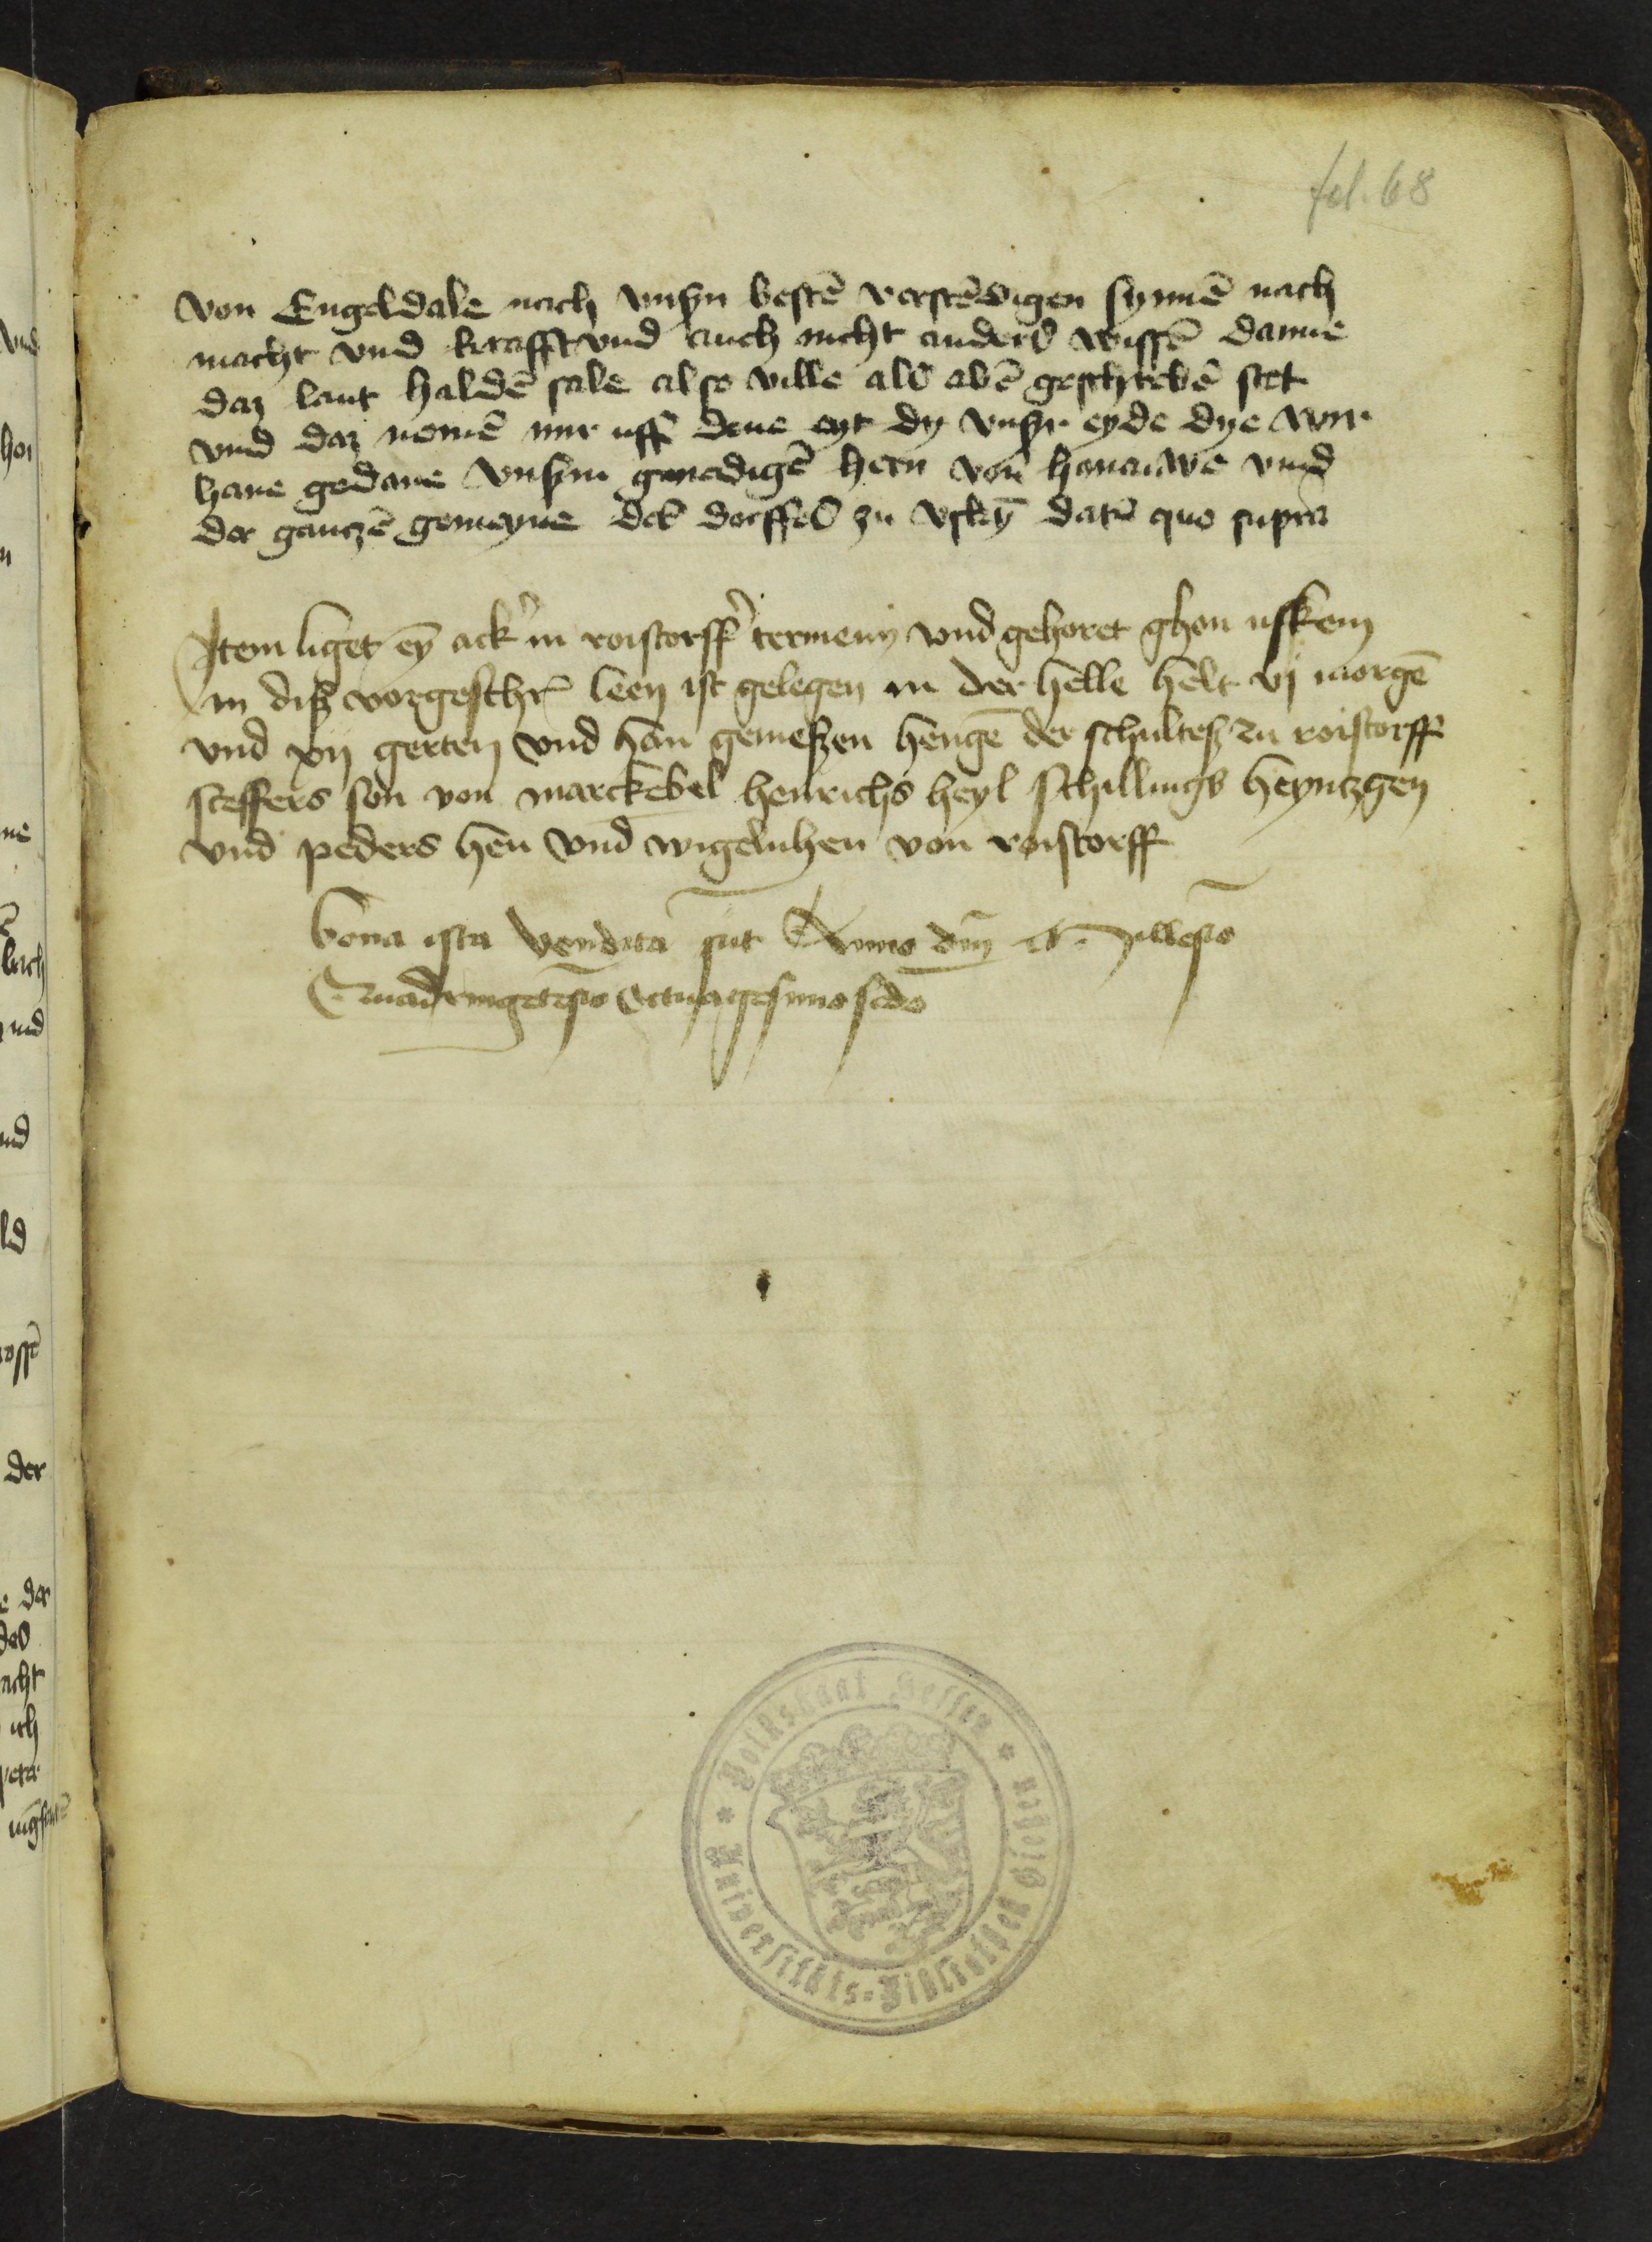 fol. 68
von Engeldale nach vnsßn bestē verstēdigen synnē nach
macht vnd krafft vnd auch nicht anders wissē danne
daz lant haldē sale also ville als abē geschrebē stet
vnd daz nemē mir uff dene eyt dy vnßr eyde dye wir
hane gedane vnßm gnedigē hern von hanauwe vnd
der ganczē gemeyne des dorffes zu vskȳ datū quo supra
Item liget eȳ acker in roistorffer termeny vnd gehoret ghen uskem
in diß vorgeschr leen ist gelegen in der helle helt vj morgē
vnd xij gerten vnd han gemeßen hengē der schulteß zu roistorff
steffers son von marckebel henrichs heyl schillings heyntzgen
vnd peders hen vnd wigelnhen von roistorff
bona ista vendita sūt Anno dnī Millesīo
Quadringētesīo Octuagesimo scdo
Volksstaat Hessen
Universitäts-Bibliothek Gießen